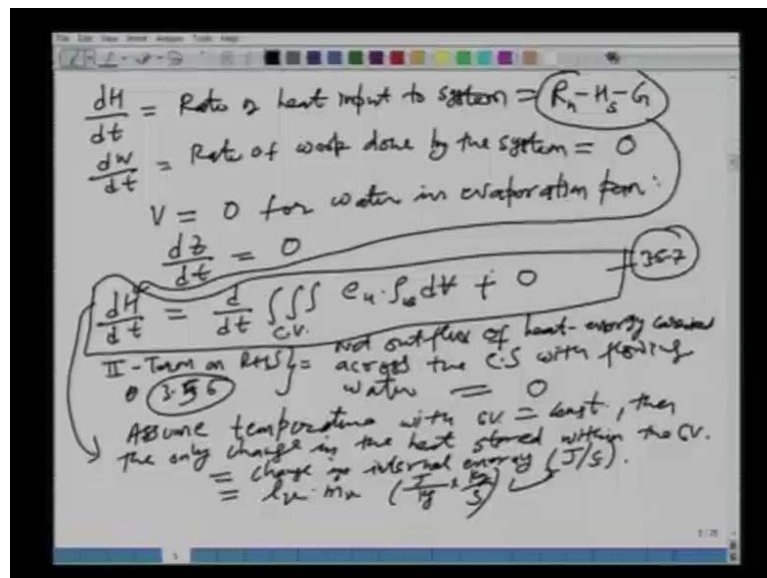 dH/dt = Rate of heat input to system = Rn - Hs - G
dW/dt = Rate of work done by the system = 0
V = 0 for water in evaporation pan:
dz/dt = 0
dH/dt = d/dt ∭ eu · ρw d∀ + 0 3.5.7
C.V.
II - Term on RHS = Net outflux of heat-energy carried
3.5.6 across the C.S with flowing
water = 0
Assume temperature with CV = const, then
the only change in the heat stored within the CV.
= change in internal energy (J/s).
= lv · mv (J/kg × kg/s)